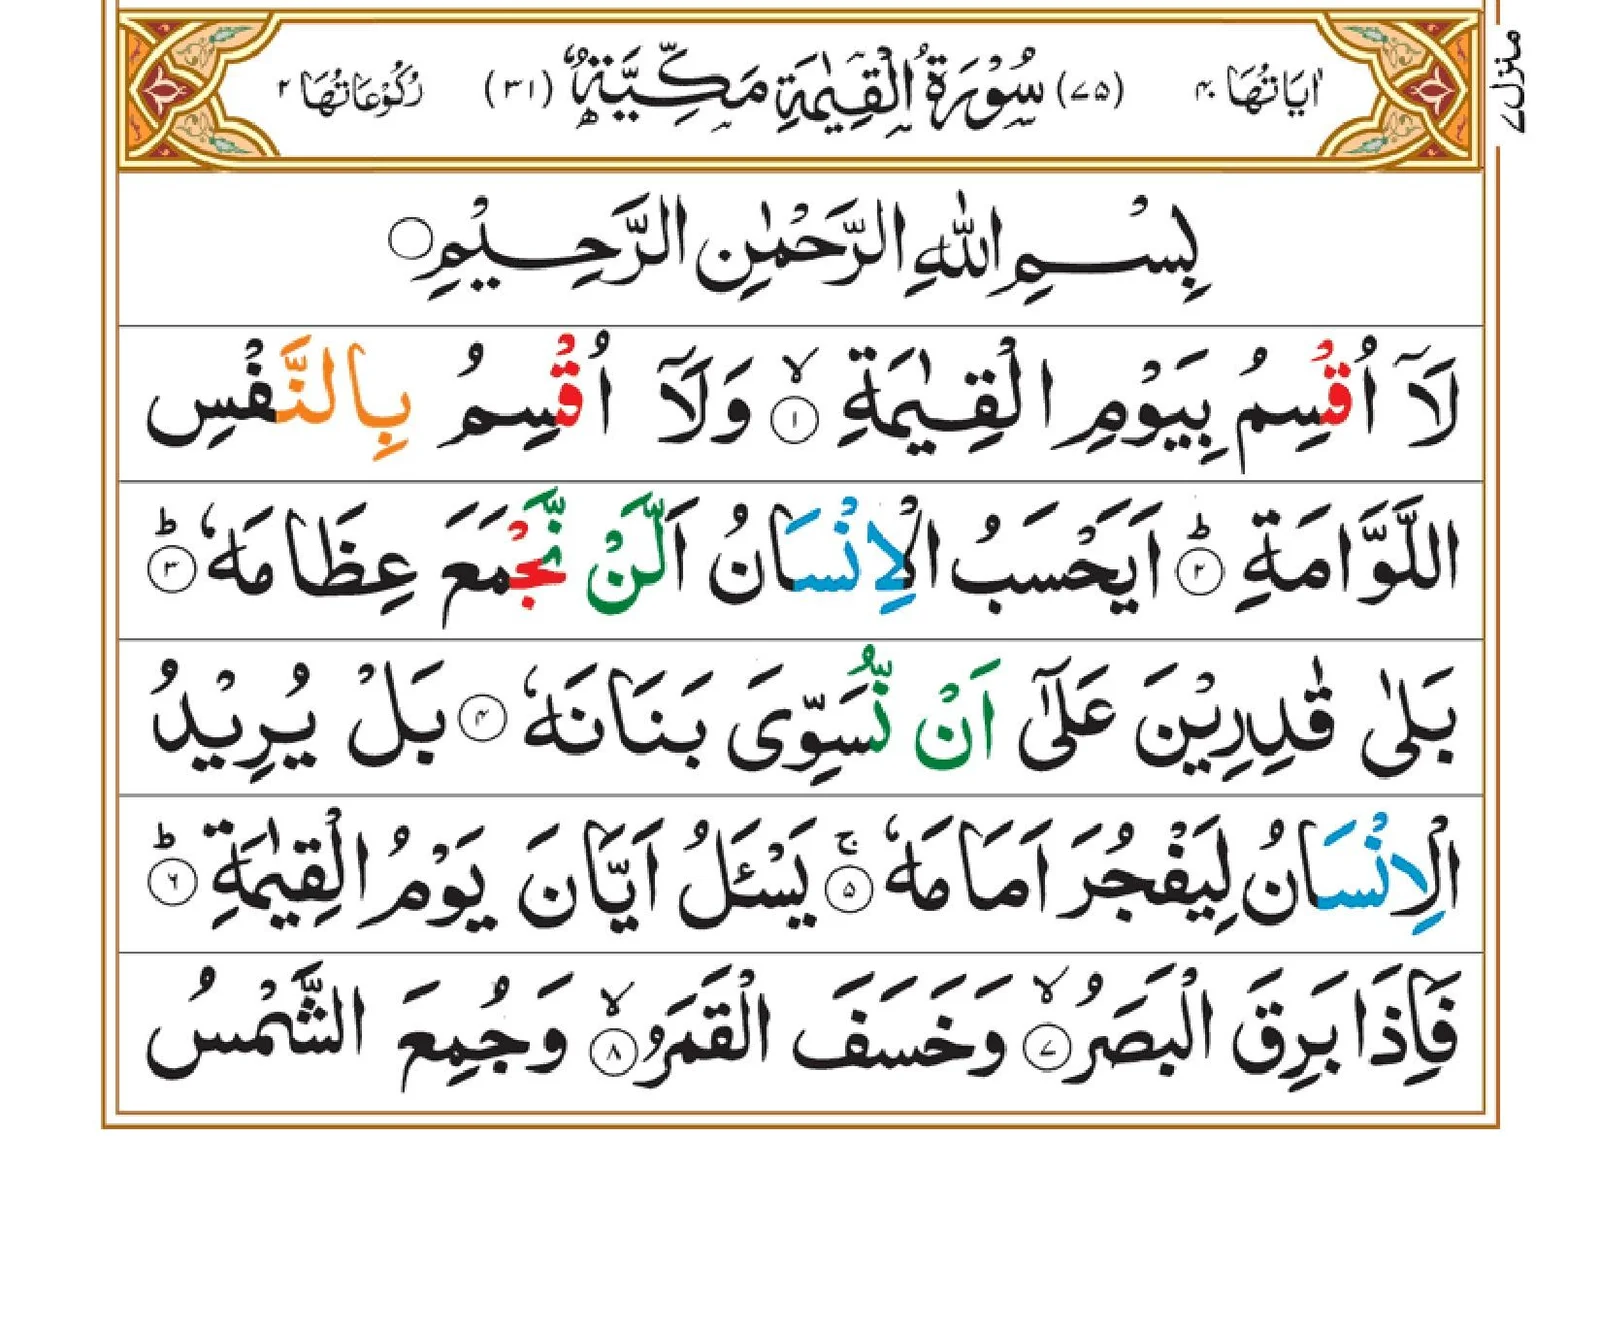 اٰيَاتُهَا ٤٠ (٧٥) سُوْرَةُ الْقِيٰمَةِ مَكِّيَّةٌ (٣١) رُكُوْعَاتُهَا ٢
منزل ٧
بِسْمِ اللّٰهِ الرَّحْمٰنِ الرَّحِيْمِ ۝
لَاۤ اُقْسِمُ بِيَوْمِ الْقِيٰمَةِ ۙ‏﴿۱﴾ وَلَاۤ اُقْسِمُ بِالنَّفْسِ
اللَّوَّامَةِ ؕ‏﴿۲﴾ اَيَحْسَبُ الْاِنْسَانُ اَلَّنْ نَّجْمَعَ عِظَامَهٗ ؕ‏﴿۳﴾
بَلٰى قٰدِرِيْنَ عَلٰٓى اَنْ نُّسَوِّىَ بَنَانَهٗ ﴿۴﴾ بَلْ يُرِيْدُ
الْاِنْسَانُ لِيَفْجُرَ اَمَامَهٗ ۚ‏﴿۵﴾ يَسْئَلُ اَيَّانَ يَوْمُ الْقِيٰمَةِ ؕ‏﴿۶﴾
فَاِذَا بَرِقَ الْبَصَرُ ۙ‏﴿۷﴾ وَخَسَفَ الْقَمَرُ ۙ‏﴿۸﴾ وَجُمِعَ الشَّمْسُ